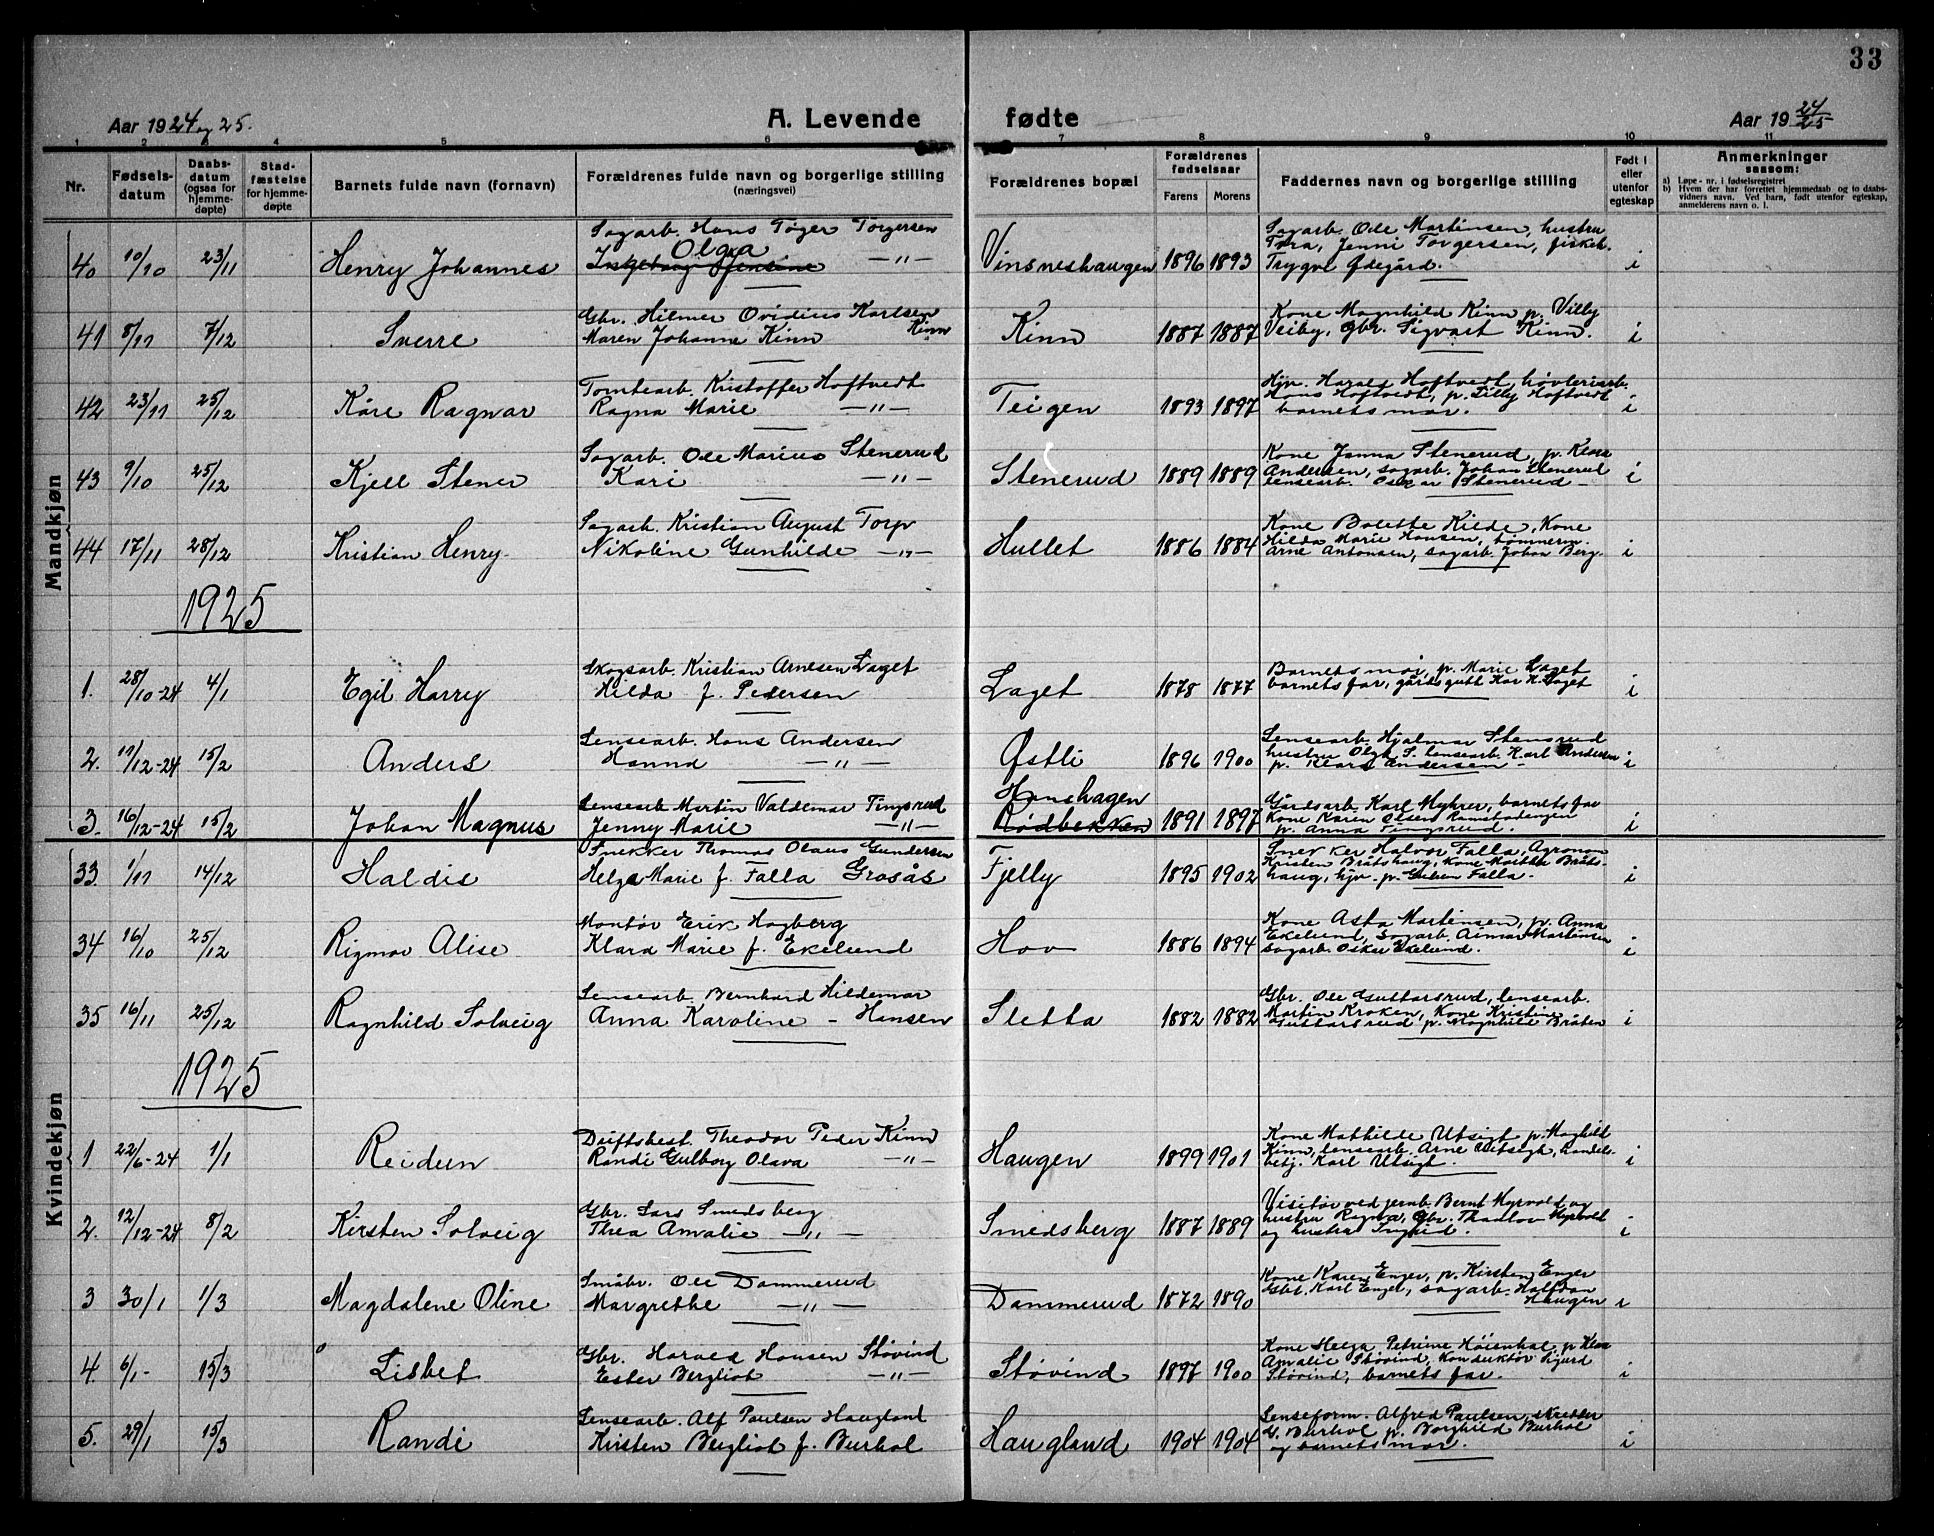 33
Aar 1924 og 25.
A. Levende fødte
Aar 19 24/25
1 2 3 4 5 6 7 8 9 10 11
Nr.
Fødsels-datum
Daabs-datum (ogsaa for hjemme-døpte)
Stad-fæstelse for hjemme-døpte
Barnets fulde navn (fornavn)
Forældrenes fulde navn og borgerlige stilling (næringsvei)
Forældrenes bopæl
Forældrenes fødselsaar
Farens Morens
Faddernes navn og borgerlige stilling
Født i eller utenfor egteskap
Anmerkninger saasom:
a) Løpe-nr. i fødselsregistret
b) Hvem der har forrettet hjemmedaab og to daabsvidners navn. Ved barn, født utenfor egteskap, anmelderens navn o. l.
Mandkjøn
40 10/10 23/11 Henry Johannes
Sagarb. Hans Tøger Torgersen
Olga —"—
Vinsneshaugen 1896 1893
Sagarb. Ole Martinsen, hustru
Tora, Jenni Torgersen,
Trygve Ødegård. i
41 8/11 7/12 Sverre
Gbr. Hilmer Ovidius Karlsen Kinn
Maren Johanne Kinn
Kinn 1887 1887
Kone Magnhild Kinn p. Villy
Veiby, gbr. Sigvart Kinn. i
42 23/11 25/12 Kåre Ragnar
Tomtearb. Kristoffer Hoftvedt
Ragna Marie —"—
Teigen 1893 1897
Hjv. Harald Hoftvedt, høvleriarb.
Hans Hoftvedt, p. Lilly Hoftvedt
barnets mor. i
43 9/10 25/12 Kjell Stener
Sagarb. Ole Marius Stenerud
Kari —"—
Stenerud 1889 1889
Kone Janna Stenerud, p. Klara
Andersen, sagarb. Johan Stenerud
lensearb. Oskar Stenerud i
44 17/11 28/12 Kristian Henry
Sagarb. Kristian August Torp
Nikoline Gunhilde —"—
Hullet 1886 1884
Kone Bolette Kilde, Kone
Hilda Marie Hansen, tømmerm.
Arne Antonsen, sagarb. Johan Berg. i
1925
1. 28/10-24 4/1 Egil Harry
Skogsarb. Kristian Arnesen Laget
Hilda f. Pedersen
Laget 1878 1877
Barnets mor, p. Marie Laget
barnets far, gårdsgutt Kar K. Laget i
2. 11/12-24 15/2 Anders
Lensearb. Hans Andersen
Hanna —"—
Østli 1896 1900
Lensearb. Hjalmar Stensrud
hustru Olga S. lensearb. Karl Andersen
p. Klara Andersen i
3. 16/12-24 15/2 Johan Magnus
Lensearb. Martin Valdemar Tingsrud
Jenny Marie —"—
Hanshagen
Rødbekken 1891 1897
Gårdsarb. Karl Myhrer, barnets far
Kone Karen Olsen Ramstadengen
p. Anna Tingsrud. i
Kvindekjøn
33 1/11 14/12 Haldis
Snekker Thomas Olaus Gundersen
Helga Marie f. Falla Grosås
Fjelly 1895 1902
Snekker Halvor Falla, Agronom
Kristen Bråtshaug, Kone Marthe Bråts-
haug, hjv. p. Falla. i
34 16/10 25/12 Rigmor Alise
Montør Erik Hagberg
Klara Marie f. Ekelund
Hov 1886 1894
Kone Asta Martinsen, p. Anna
Ekelund, Sagarb. Martinsen
sagarb. Oskar Ekelund. i
35 16/11 25/12 Ragnhild Solveig
Lensearb. Bernhard Hildemar
Anna Karoline – Hansen
Sletta 1882 1882
Gbr. Ole Guttarsrud, lensearb.
Martin Kroken, Kone Kristine
Guttarsrud p. Magnhild Bråten i
1925
1 22/6-24 1/1 Reidun
Driftsbest. Theodor Peder Kinn
Randi Gulborg Olava —"—
Haugen 1899 1901
Kone Mathilde Utsigt p. Maghild
Kinn, lensearb. Arne Utsigt, handels-
betj. Karl Utsigt. i
2. 12/12-24 8/2 Kirsten Solveig
Gbr. Lars Smedsberg
Thea Amalie —"—
Smedsberg 1887 1889
Visitør ved jernb. Bernt Myrvold og
hustru Ragna, Gbr. Myrvold
og hustru Ingrid. i
3 30/1 1/3 Magdalene Oline
Småbr. Ole Dammerud
Margrethe —"—
Dammerud 1872 1890
Kone Karen Enger, p. Kirsten Enger
Gbr. Karl Enger, sagarb. Halfdan
Haugen i
4. 6/1- 15/3 Lisbet
Gbr. Harald Hansen Støvind
Ester Bergliot —"—
Støvind 1897 1900
Kone Helga Petrine p. Klara
Amalie Støvind, Konduktør
Støvind, barnets far. i
5. 29/1 15/3 Randi
Lensearb. Alf Paulsen Haugland
Kirsten Bergliot f. Burhol
Haugland 1904 1904
Lenseform. Alfred Paulsen, skredder
G. Burhol p. Borghild Burhol
og barnets mor. i